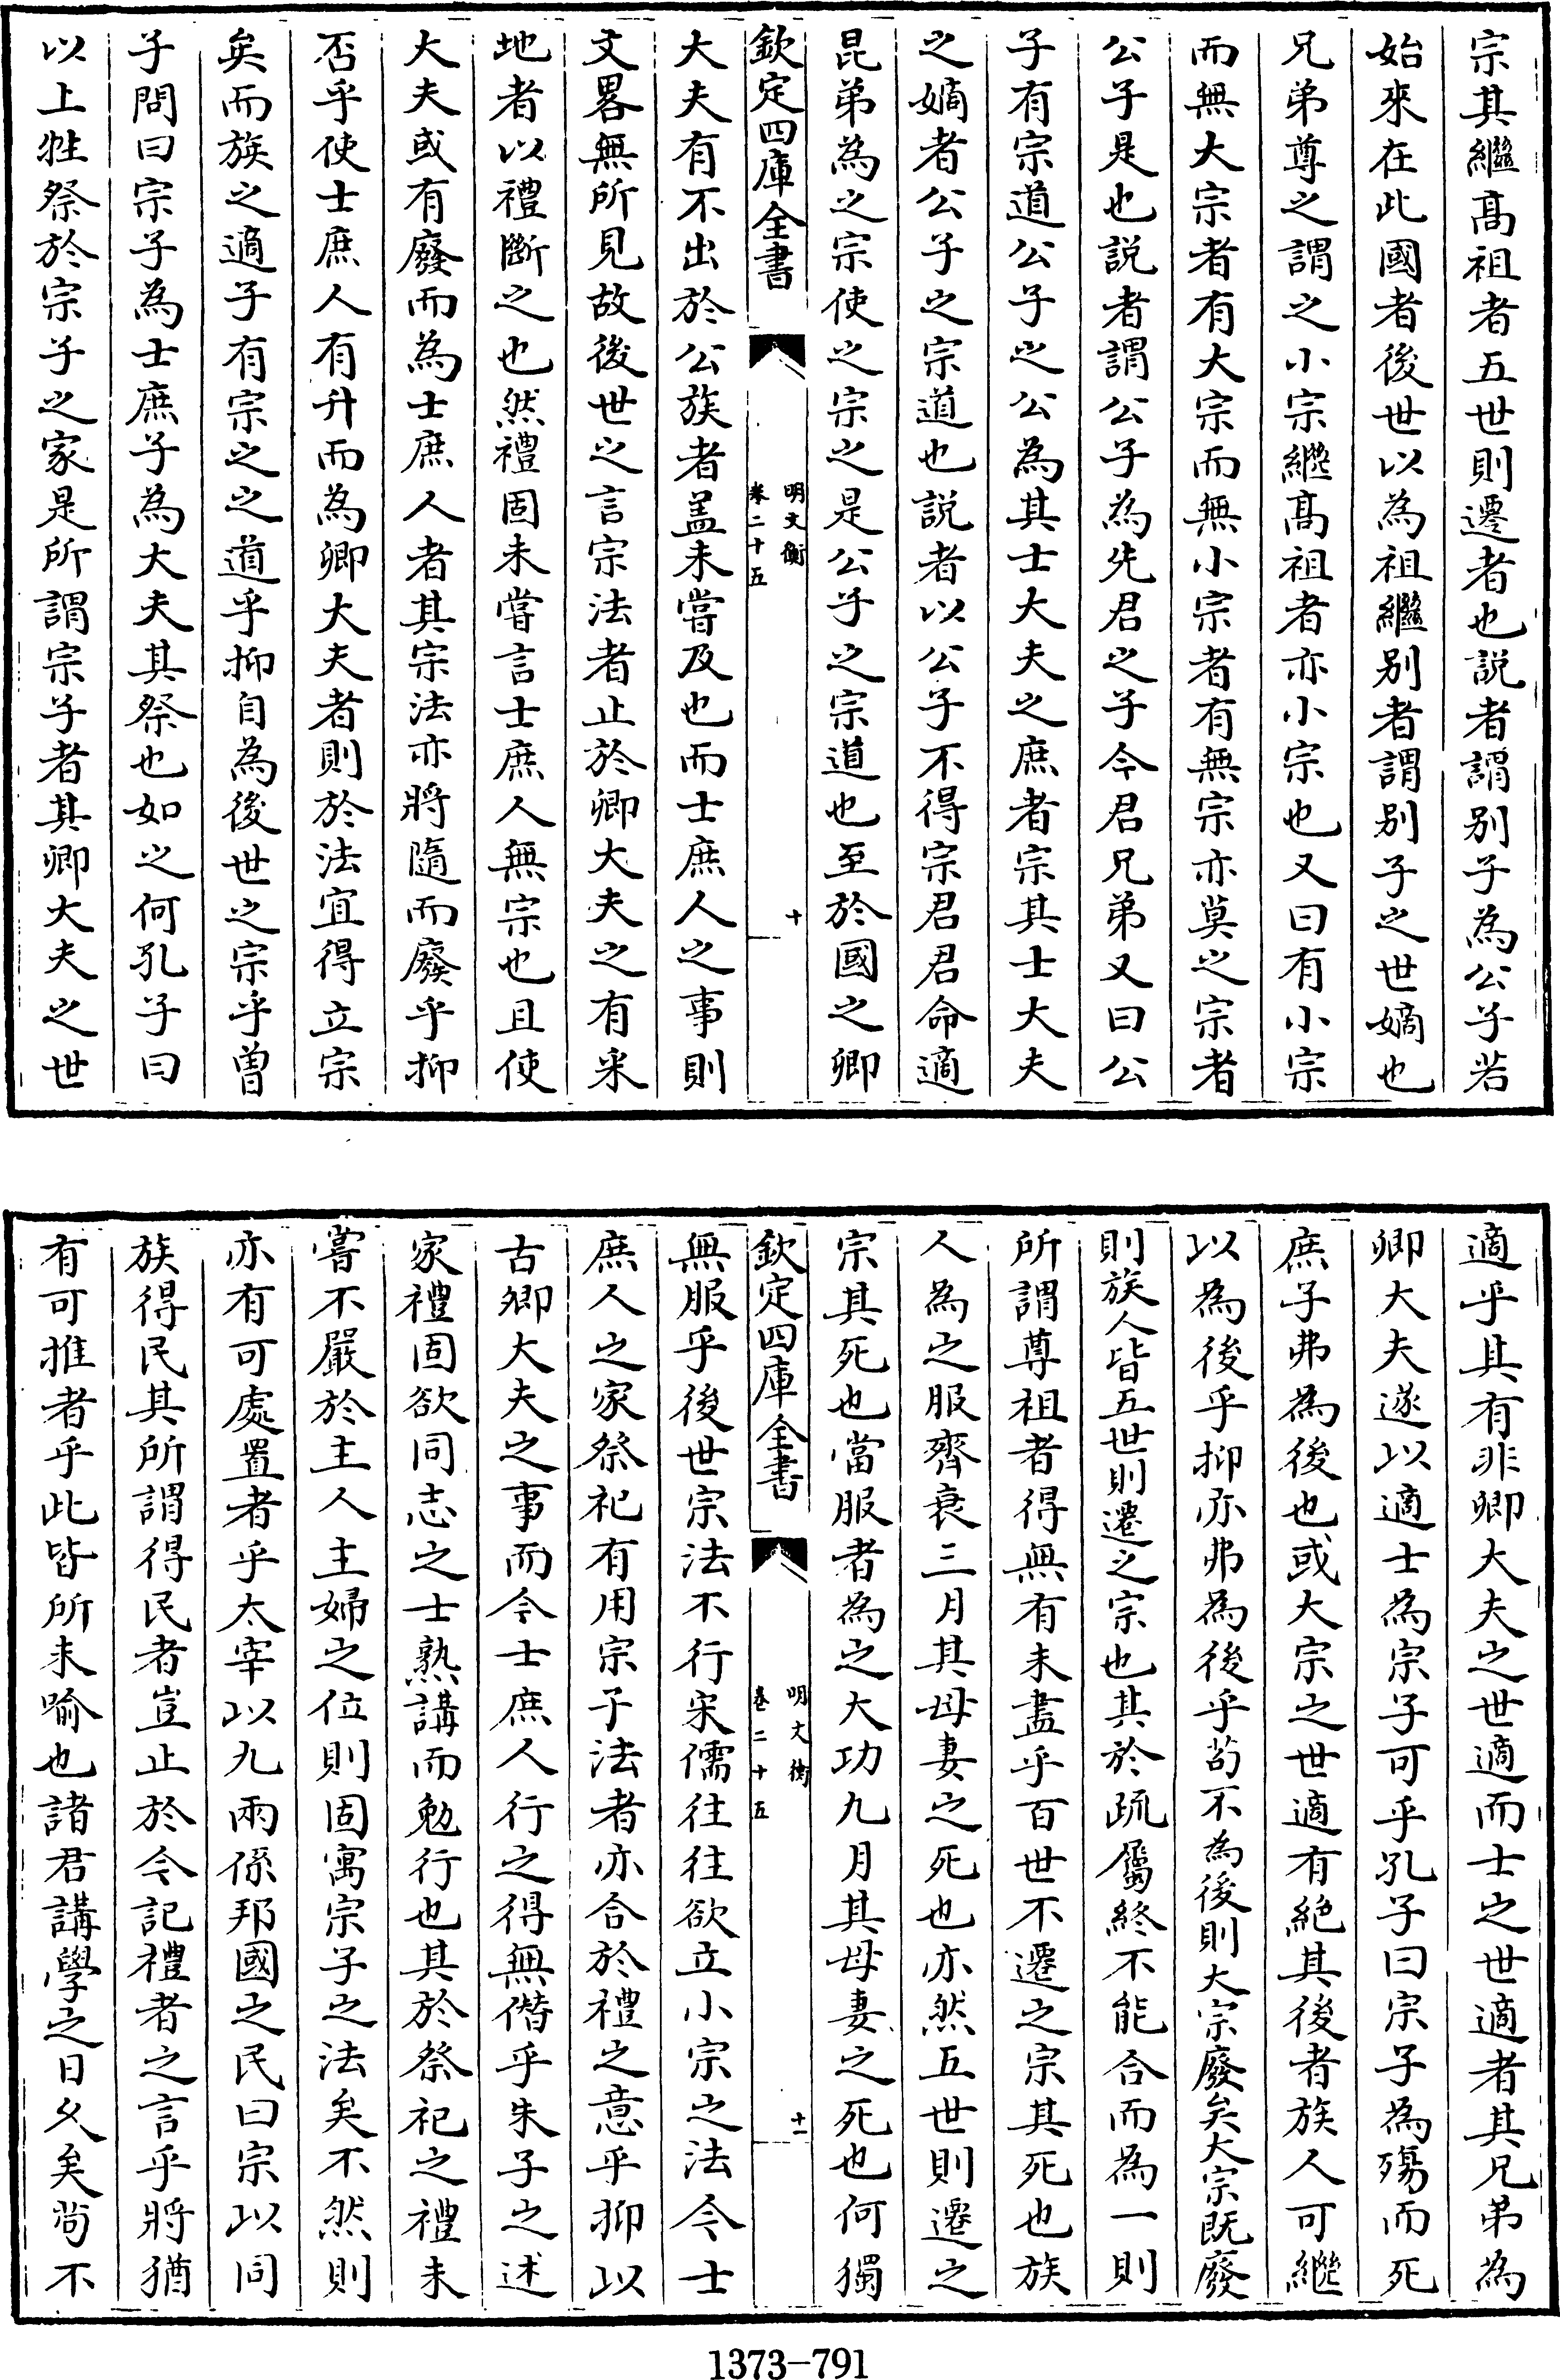 宗其繼髙祖者五世則遷者也説者謂别子為公子若
始來在此國者後世以為祖繼别者謂别子之世嫡也
兄弟尊之謂之小宗繼髙祖者亦小宗也又曰有小宗
而無大宗者有大宗而無小宗者有無宗亦莫之宗者
公子是也説者謂公子為先君之子今君兄弟又曰公
子有宗道公子之公為其士大夫之庶者宗其士大夫
之嫡者公子之宗道也説者以公子不得宗君君命適
昆弟為之宗使之宗之是公子之宗道也至於國之卿
欽定四庫全書
明文衡
卷二十五
十
大夫有不出於公族者盖未嘗及也而士庶人之事則
文畧無所見故後世之言宗法者止於卿大夫之有采
地者以禮斷之也然禮固未嘗言士庶人無宗也且使
大夫或有廢而為士庶人者其宗法亦將隨而廢乎抑
否乎使士庶人有升而為卿大夫者則於法宜得立宗
矣而族之適子有宗之之道乎抑自為後世之宗乎曽
子問曰宗子為士庶子為大夫其祭也如之何孔子曰
以上牲祭於宗子之家是所謂宗子者其卿大夫之世
適乎其有非卿大夫之世適而士之世適者其兄弟為
卿大夫遂以適士為宗子可乎孔子曰宗子為殤而死
庶子弗為後也或大宗之世適有絶其後者族人可繼
以為後乎抑亦弗為後乎茍不為後則大宗廢矣大宗既廢
則族人皆五世則遷之宗也其於疏屬終不能合而為一則
所謂尊祖者得無有未盡乎百世不遷之宗其死也族
人為之服齊衰三月其母妻之死也亦然五世則遷之
宗其死也當服者為之大功九月其母妻之死也何獨
欽定四庫全書
明文衡
卷二十五
十一
無服乎後世宗法不行宋儒往往欲立小宗之法今士
庶人之家祭祀有用宗子法者亦合於禮之意乎抑以
古卿大夫之事而今士庶人行之得無僭乎朱子之述
家禮固欲同志之士熟講而勉行也其於祭祀之禮未
嘗不嚴於主人主婦之位則固寓宗子之法矣不然則
亦有可處置者乎太宰以九兩係邦國之民曰宗以同
族得民其所謂得民者豈止於今記禮者之言乎將猶
有可推者乎此皆所未喻也諸君講學之日久矣尚不
1373-791